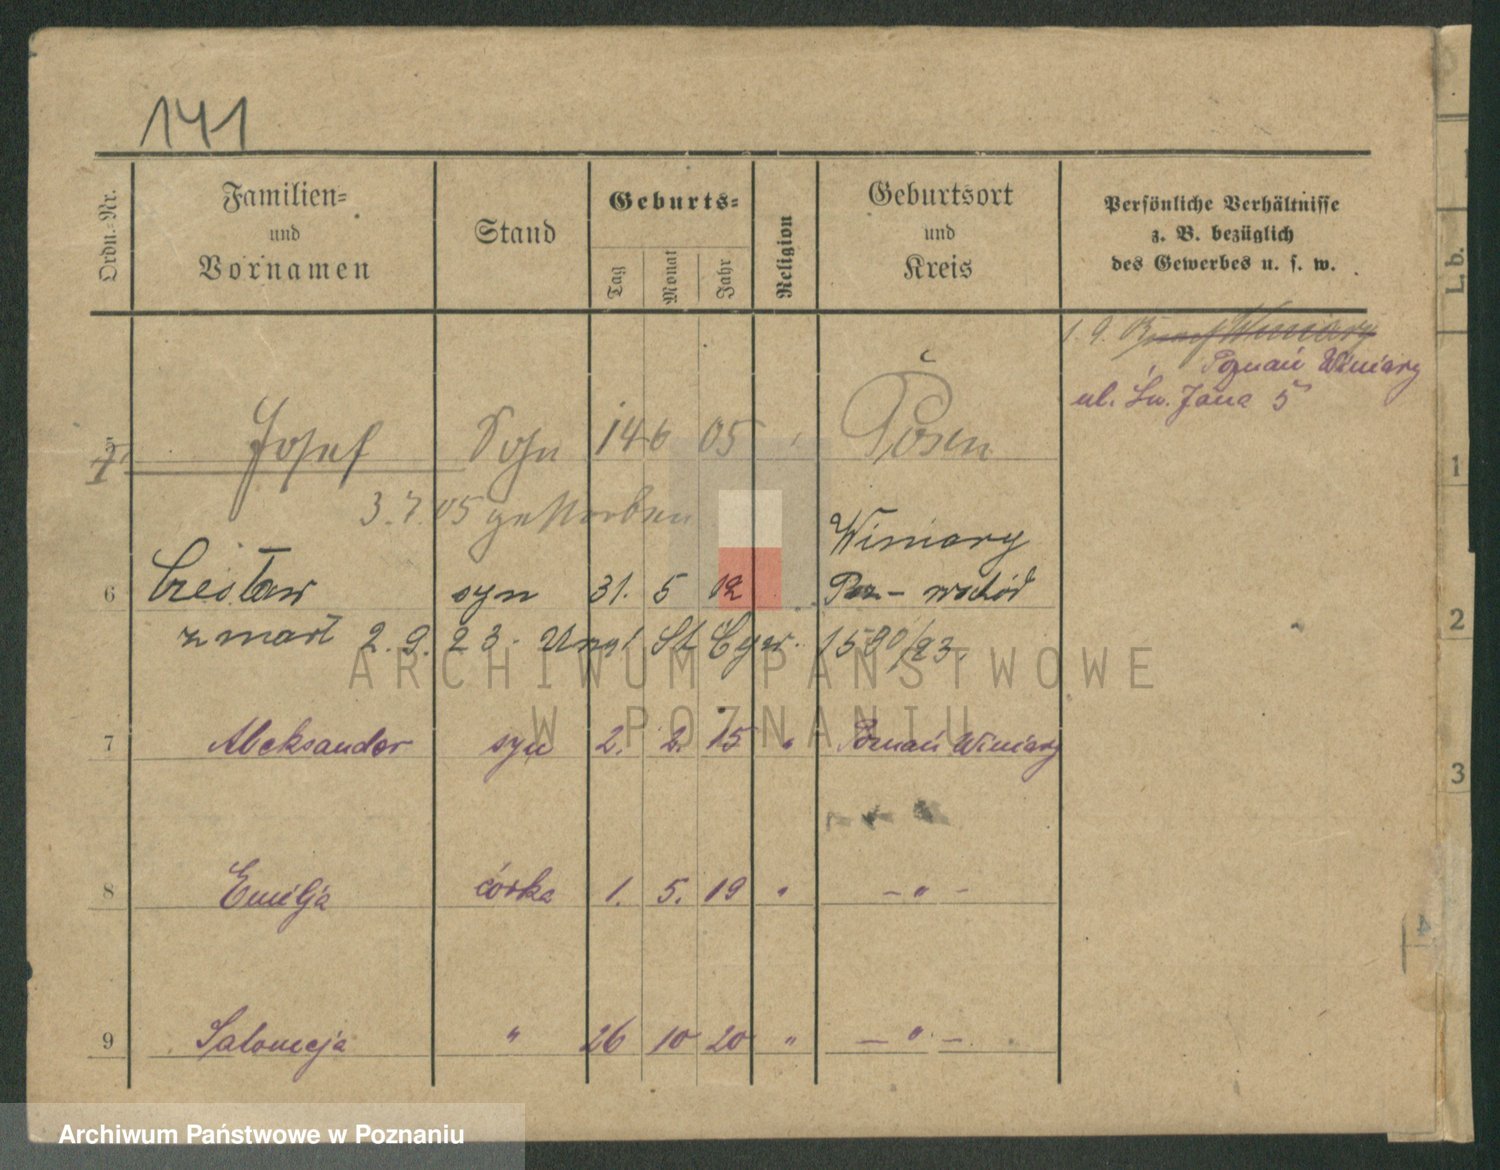 141
Ordn.-Nr.
Familien-
und
Vornamen
Stand
Geburts-
Tag
Monat
Jahr
Religion
Geburtsort
und
Kreis
Persönliche Verhältnisse
z. B. bezüglich
des Gewerbes u. s. w.
L. b.
1. 9. Winiary
Poznań Winiary
ul. Św. Jana 5
5 Josef Sohn 14 6 05 Posen
3.7.05 gestorben
Winiary
6 Czesław syn 31. 5 12 Poz- wschód
zmarł 2.9.23. St 1590/23.
7 Aleksander syn 2. 2. 15 " Poznań Winiary
8 Emilja córka 1. 5. 19 " - " -
9 Salomeja " 26 10 20 " - " -
1
2
3
4
ARCHIWUM PAŃSTWOWE
W POZNANIU
Archiwum Państwowe w Poznaniu